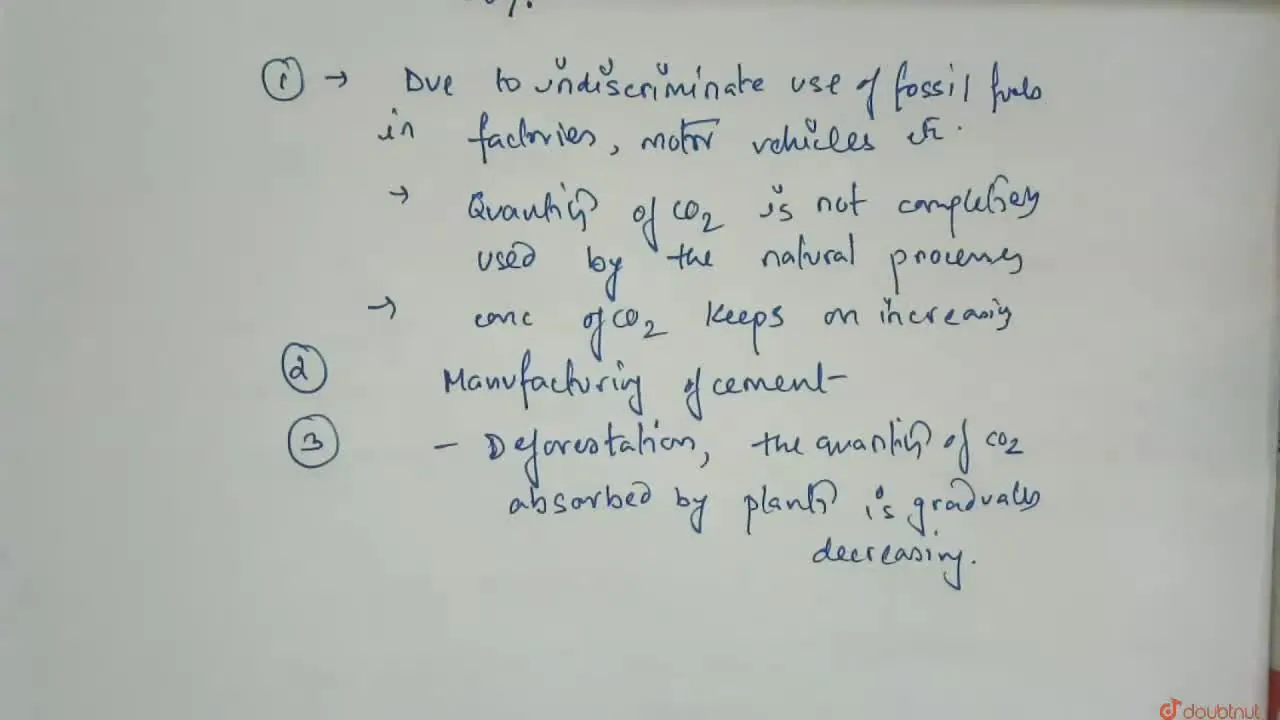 ① → Due to indiscriminate use of fossil fuels
in factories, motor vehicles etc.
→ Quantity of CO2 is not completely
used by the natural processes
→ conc of CO2 keeps on increasing
② Manufacturing of cement
③ - Deforestation, the quantity of CO2
absorbed by plants is gradually
decreasing.
doubtnut